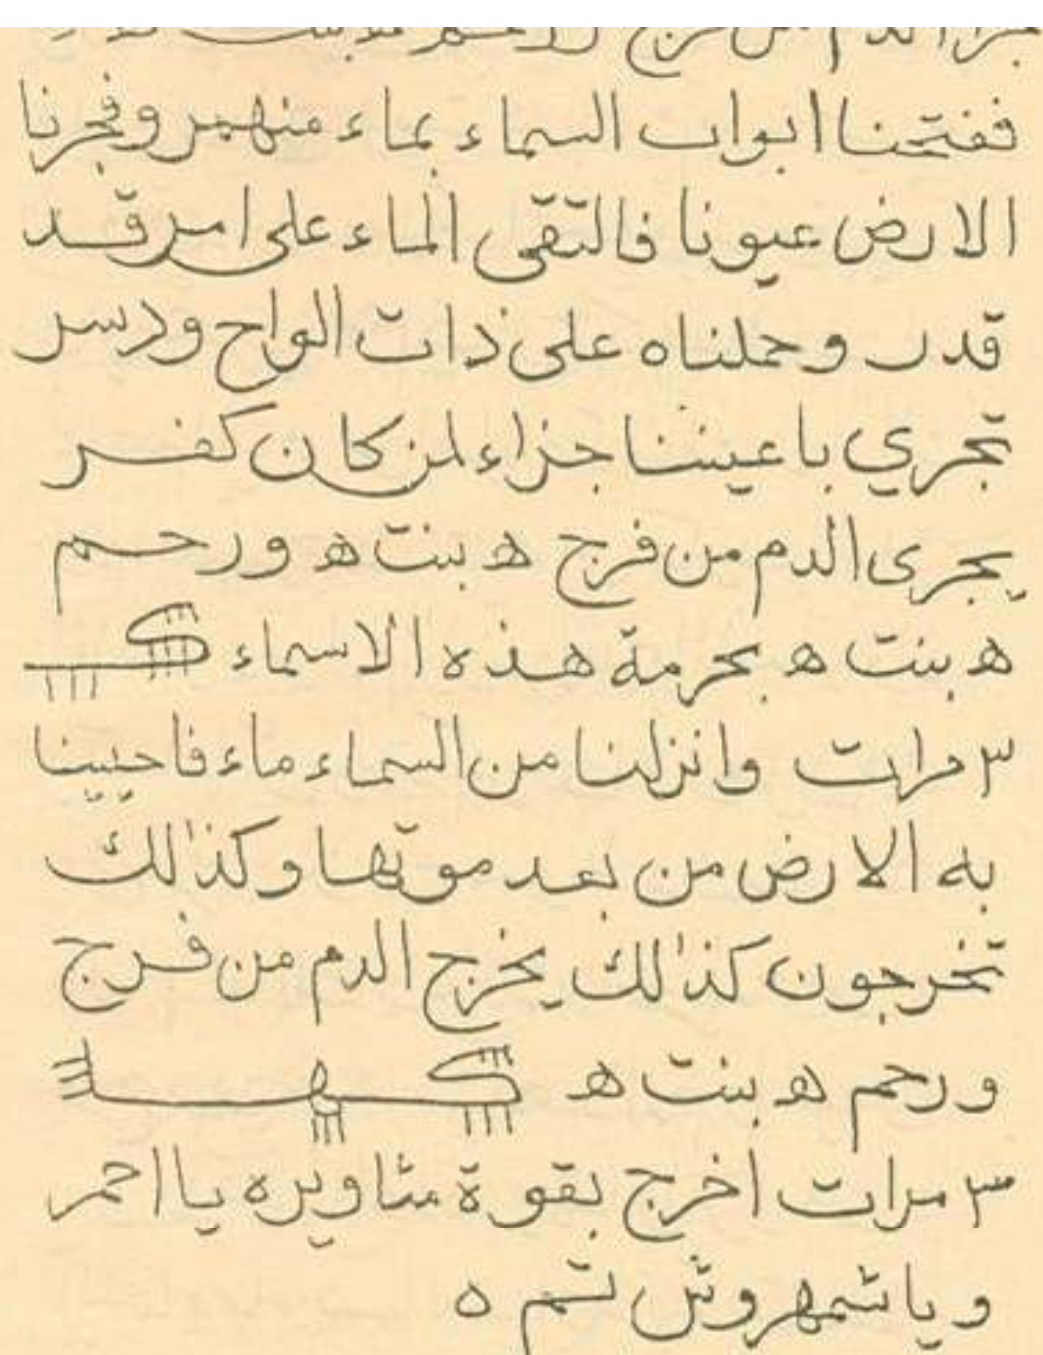 ففتحنا ابواب السماء بماء منهمر وفجرنا
الارض عيونا فالتقى الماء على امر قد
قدر وحملناه على ذات الواح ودسر
تجري باعيننا جزاء لمن كان كفر
يجرى الدم من فرج ه بنت ه ورحم
ه بنت ه بحرمة هذه الاسماء
٣ مرات وانزلنا من السماء ماء فاحيينا
به الارض من بعد موتها وكذالك
تخرجون كذالك يخرج الدم من فرج
ورحم ه بنت ه
٣ مرات اخرج بقوة يا احمر
ويا شمهروش تم ه